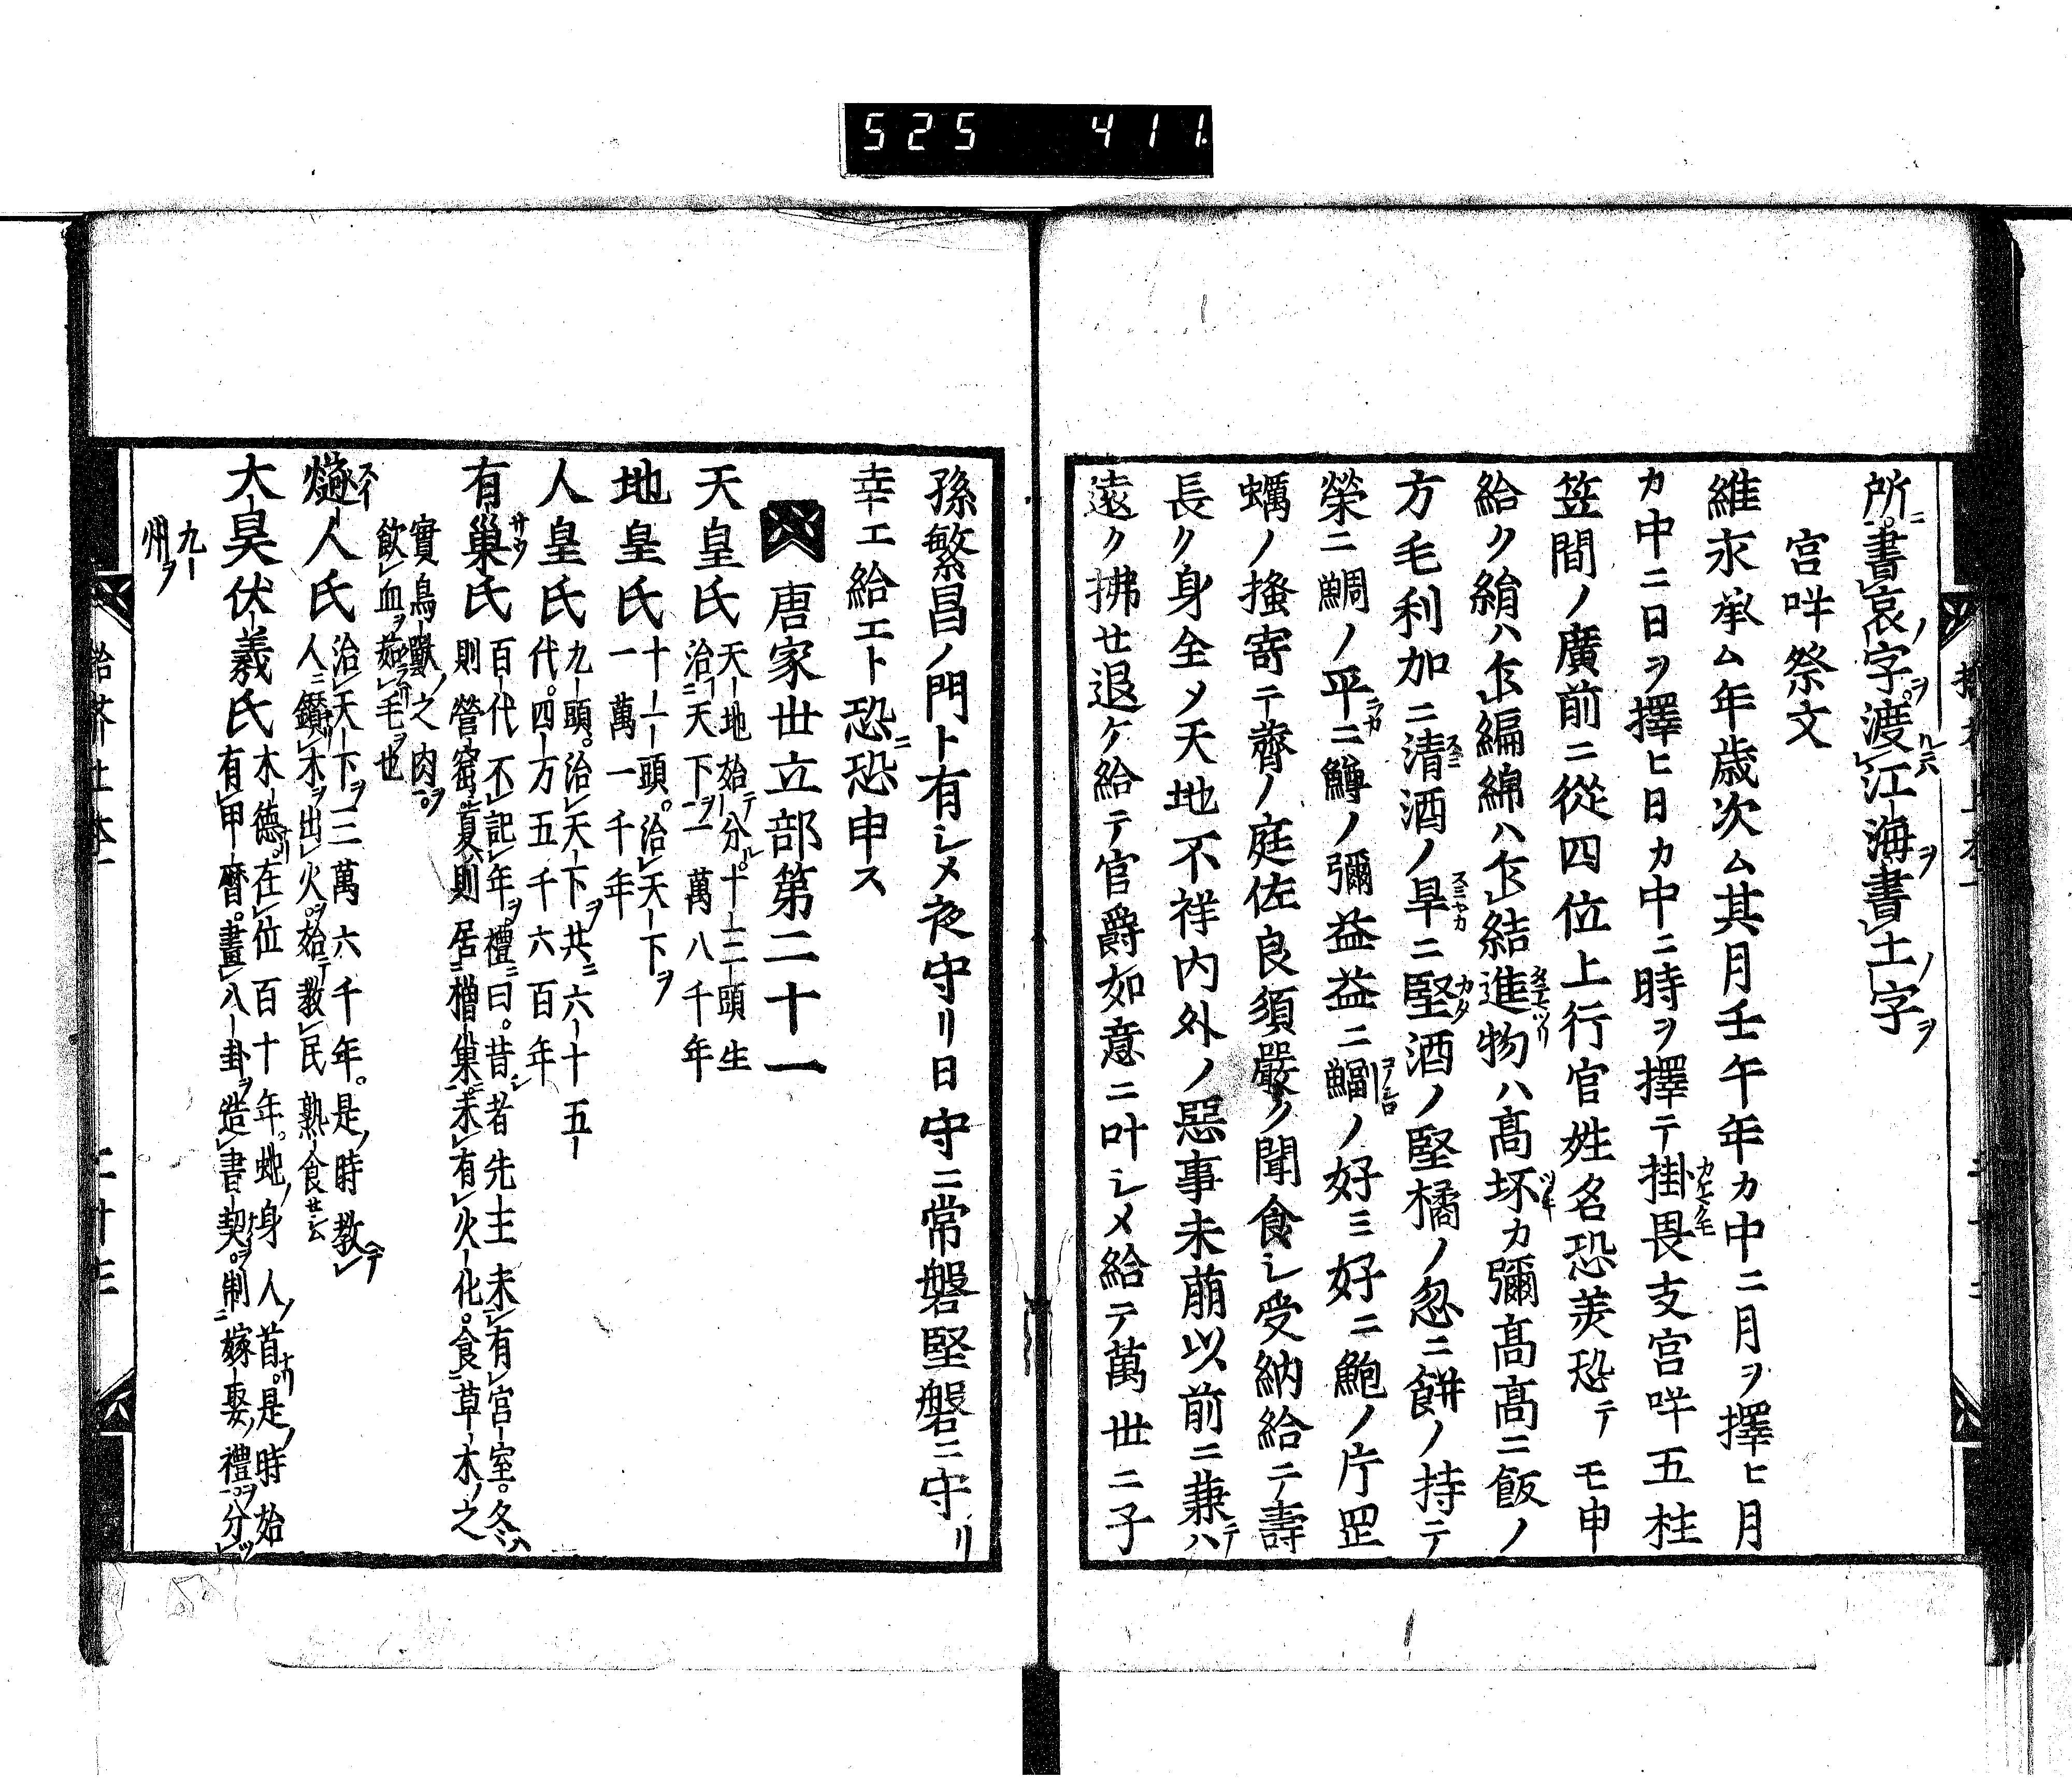 525 411
所ニ書哀ノ字ヲ渡レ六江海ヲ書土ノ字ヲ
宮咩祭文
維永承ム年歳次ム其月壬午年カ中ニ月ヲ擇ヒ月
カ中ニ日ヲ擇ヒ日カ中ニ時ヲ擇テ掛畏支宮咩五柱
笠間ノ廣前ニ從四位上行官姓名恐美恐テモ申
給ク絹ハ編綿ハ結進物ハ髙坏カ彌髙髙ニ飯ノ
方毛利加ニ清酒ノ早ニ堅酒ノ堅橘ノ忽ニ餅ノ持テ
榮ニ鯛ノ平ニ鱒ノ彌益益ニ鰏ノ好ミ好ニ鮑ノ片罡
蠣ノ掻寄ニ薺ノ庭佐良須嚴ク聞食シ受納給テ壽
長ク身全メ天地不祥内外ノ惡事未萠以前ニ兼テハ
遠ク拂せ退ケ給テ官爵如意ニ叶シメ給テ萬世ニ子
孫繁昌ノ門ト有シメ夜守リ日守ニ常磐堅磐ニ守リ
幸エ給エト恐ニ恐申ス
唐家世立部第二十一
天皇氏 天地始テ分。十二頭生
治ニ天下ヲ一萬八千年
地皇氏 十一頭。治天下ヲ
一萬一千年
人皇氏 九頭。治天下ヲ共ニ六十五
代。四万五千六百年
有巣氏 百代不記年ヲ。禮ニ曰。昔者先主未有宮室。冬ハ
則營窟。夏則居橧巣。未有火化。食草木ノ之
實鳥獸ノ之肉ヲ。
飮血ヲ茹毛ヲ也
燧人氏 治天下ヲ三萬六千年。是ノ時教テ
人ニ鑚木ヲ出火ヲ。始テ教民熟食セシム
大昊伏羲氏 木德在位百十年。蛇ノ身人ノ首。是ノ時始
有甲暦。畫八卦ヲ造書契ヲ。制ニ嫁娶ノ禮ヲ。分ツ
九
州ヲ